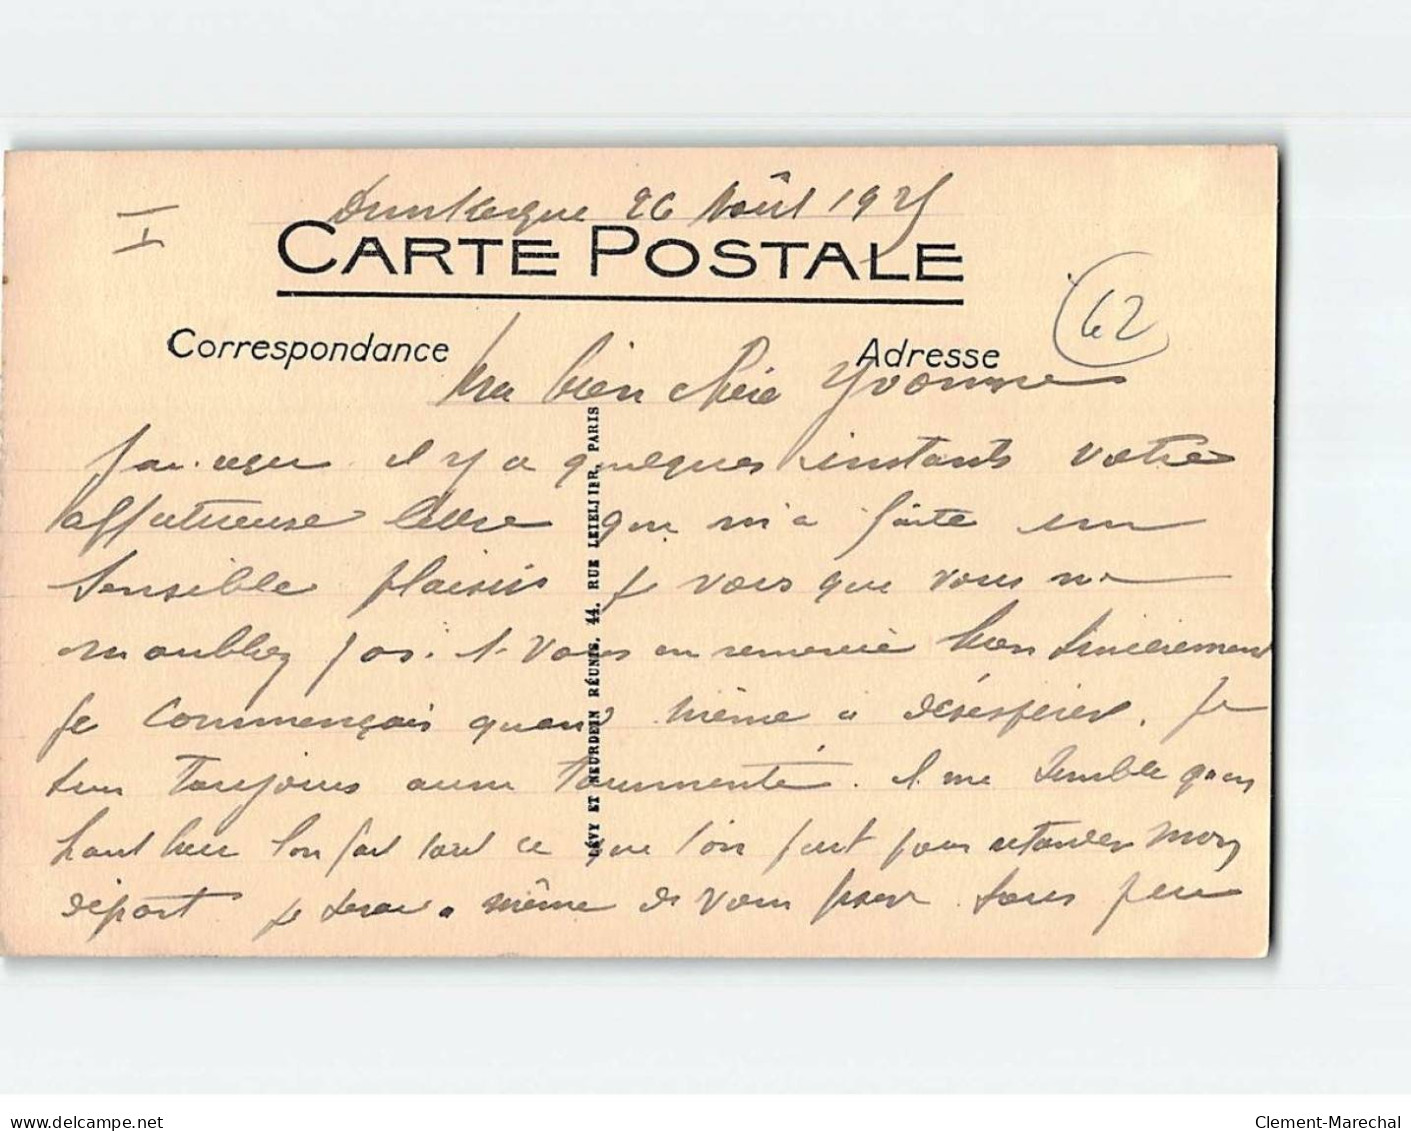 Dunkerque 26 Août 1925
CARTE POSTALE
Correspondance
Adresse
62
Ma bien chère Yvonne
J'ai reçu il y a quelques instants votre
affectueuse lettre qui m'a faite un
sensible plaisir je vois que vous ne
m'oubliez pas. Je vous en remercie bien sincèrement
je commençais quand même à désespérer. Je
suis toujours aussi tourmenté. il me semble qu'en
haut lieu l'on fait tout ce que l'on peut pour retarder mon
départ je serai même de vous fixer sous peu
LÉVY ET NEURDEIN RÉUNIS, 44, RUE LETELLIER, PARIS
I
www.delcampe.net
Clement-Marechal